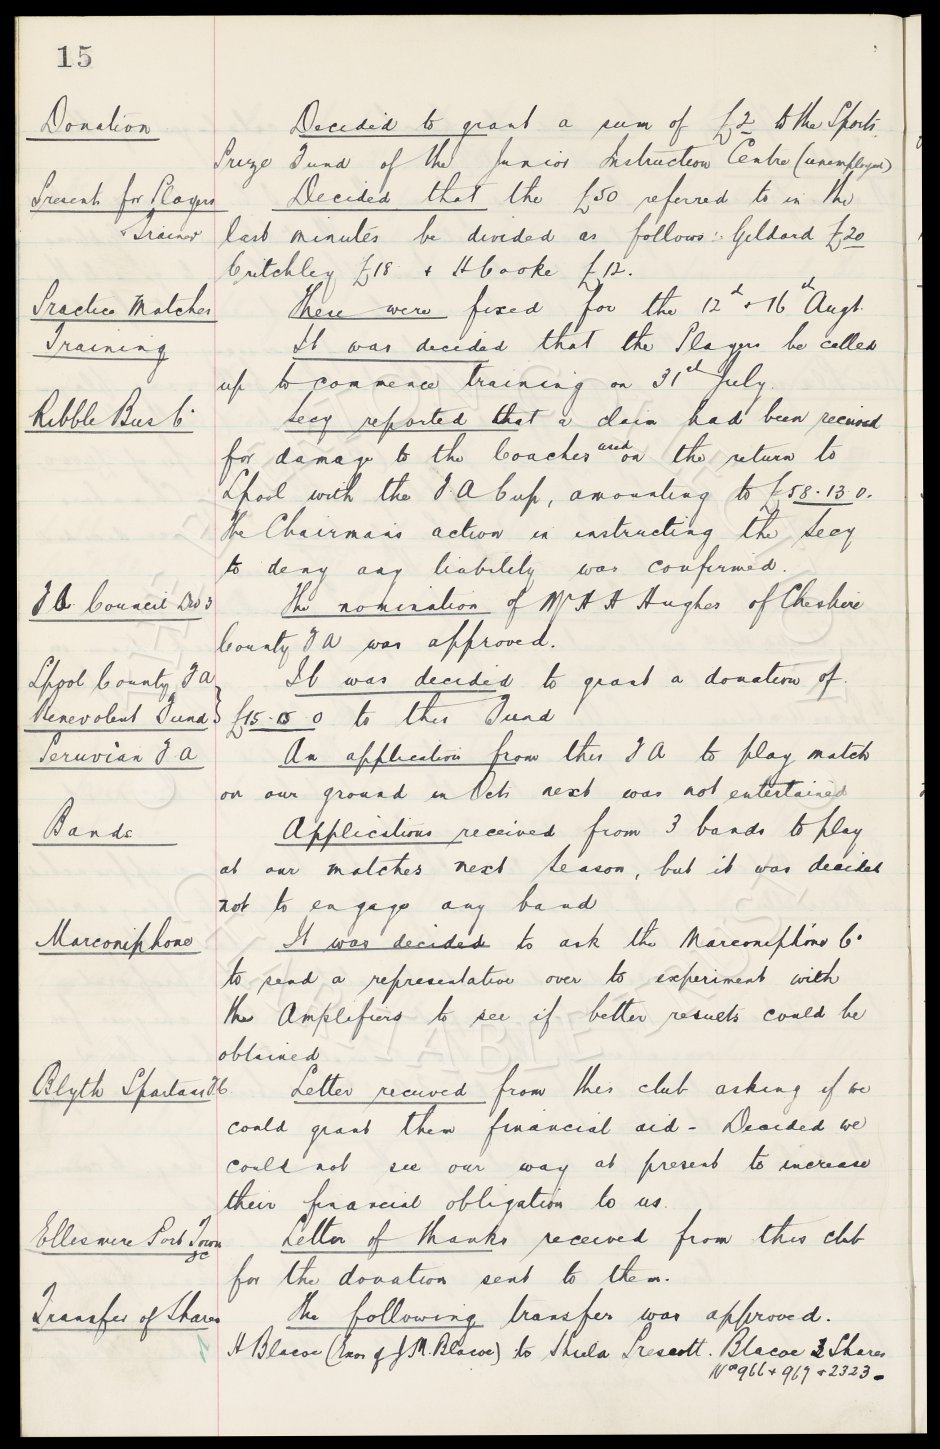 15
Donation Decided to grant a sum of £2 to the Sports
Prize Fund of the Junior Instruction Centre (unemployed)
Presents for Players Decided that the £50 referred to in the
& Trainer last minutes be divided as follows:- Geldard £20
Critchley £18 & H Cooke £12.
Practice Matches These were fixed for the 12th & 16th Augt.
Training It was decided that the Players be called
up to commence training on 31st July.
Ribble Bus Co Secy reported that a claim had been received
for damage to the Coaches used on the return to
Lpool with the F A Cup, amounting to £58.13.0.
The Chairmans action in instructing the Secy
to deny any liability was confirmed.
F A Council Div 3 The nomination of Mr H H Hughes of Cheshire
County F A was approved.
Lpool County F A It was decided to grant a donation of
Benevolent Fund } £15.15.0 to this Fund
Peruvian F A An application from this F A to play match
on our ground in Octr next was not entertained
Bands Applications received from 3 bands to play
at our matches next season, but it was decided
not to engage any band
Marconiphone It was decided to ask the Marconiphone Co
to send a representative over to experiment with
the Amplifiers to see if better results could be
obtained
Blyth Spartans FC Letter received from this club asking if we
could grant them financial aid - Decided we
could not see our way at present to increase
their financial obligation to us.
Ellesmere Port Town FC Letter of thanks received from this club
for the donation sent to them.
Transfer of Shares The following transfer was approved.
H Blacoe (Exor of J. M. Blacoe) to Sheila Prescott. Blacoe 3 Shares
Nos 966 + 967 + 2323.